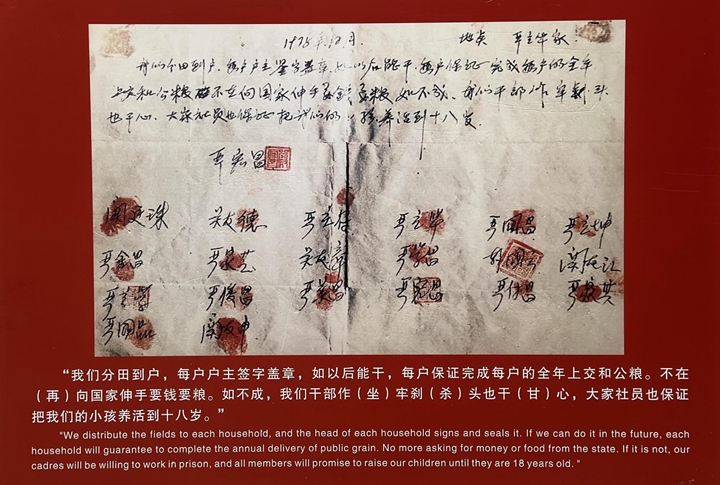 1978年12月. 地点 严立华家.
我们分田到户,每户户主签字盖章,如以后能干,每户保证完成每户的全年
上交和公粮不在向国家伸手要钱要粮。如不成,我们干部作牢刹头
也干心,大家社员也保证把我们的小孩养活到十八岁。
严宏昌
关廷珠 关友德 严立符 严立华 严国昌 严立坤
严金昌 严家芝 关友章 严学昌 韩国云 关友江
严立学 严俊昌 严美昌 严宏昌 严付昌 严家其
严国品 关友申
“我们分田到户，每户户主签字盖章，如以后能干，每户保证完成每户的全年上交和公粮。不在
（再）向国家伸手要钱要粮。如不成，我们干部作（坐）牢刹（杀）头也干（甘）心，大家社员也保证
把我们的小孩养活到十八岁。”
"We distribute the fields to each household, and the head of each household signs and seals it. If we can do it in the future, each
household will guarantee to complete the annual delivery of public grain. No more asking for money or food from the state. If it is not, our
cadres will be willing to work in prison, and all members will promise to raise our children until they are 18 years old. "